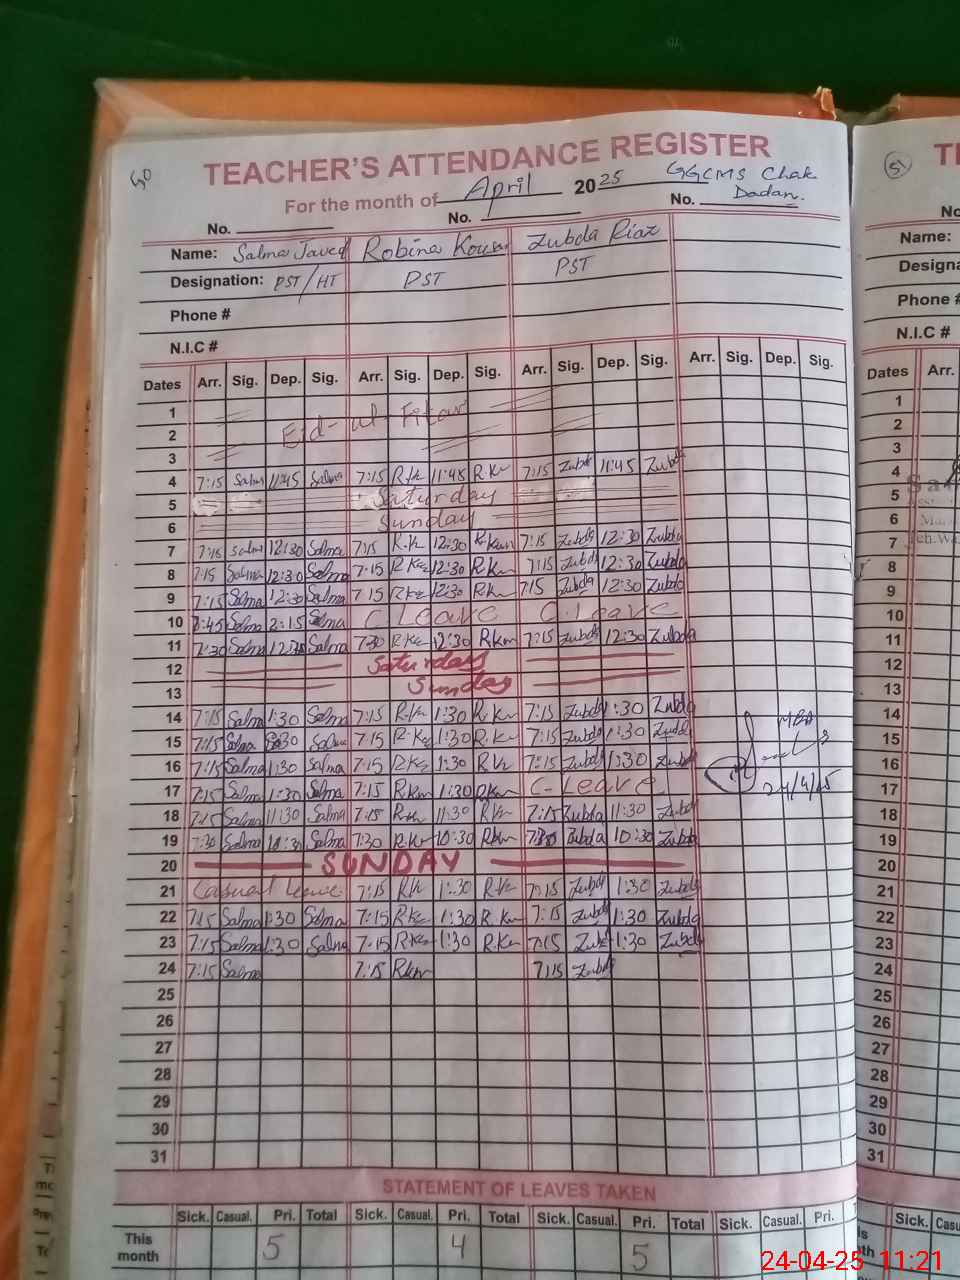 50
TEACHER'S ATTENDANCE REGISTER
For the month of April 2025 GGCMS Chak Dadan.
No. No. No.
Name: Salma Javed Robina Kousar Zubda Riaz
Designation: PST/HT PST PST
Phone #
N.I.C #
Dates Arr. Sig. Dep. Sig. Arr. Sig. Dep. Sig. Arr. Sig. Dep. Sig. Arr. Sig. Dep. Sig.
1
2 Eid-ul-Fitar
3
4 7:15 Salma 11:45 Salma 7:15 R.k 11:45 R.Kn 7:15 Zubda 11:45 Zubda
5 Saturday
6 Sunday
7 7:15 Salma 12:30 Salma 7:15 R.k 12:30 R.Kn 7:15 Zubda 12:30 Zubda
8 7:15 Salma 12:30 Salma 7:15 R.Kn 12:30 R.Kn 7:15 Zubda 12:30 Zubda
9 7:15 Salma 12:30 Salma 7:15 R.Kn 12:30 R.Kn 7:15 Zubda 12:30 Zubda
10 Salma 2:15 Salma C Leave C. Leave
11 7:30 Salma 12:30 Salma 7:30 R.Kn 12:30 R.Kn 7:15 Zubda 12:30 Zubda
12 Saturday
13 Sunday
14 7:15 Salma 1:30 Salma 7:15 R.Kn 1:30 R.Kn 7:15 Zubda 1:30 Zubda
15 7:15 Salma Salma 7:15 R.Kn 1:30 R.Kn 7:15 Zubda 1:30 Zubda
16 7:15 Salma 1:30 Salma 7:15 R.Kn 1:30 R.Kn 7:15 Zubda 1:30 Zubda
17 7:15 Salma 1:30 Salma 7:15 R.Kn 1:30 R.Kn C-Leave 24/4/25
18 7:15 Salma 11:30 Salma 7:15 R.Kn 11:30 R.Kn 7:15 Zubda 11:30 Zubda
19 7:30 Salma 10:30 Salma 7:30 R.Kn 10:30 R.Kn 7:30 Zubda 10:30 Zubda
20 SUNDAY
21 Casual leave 7:15 R.k 1:30 R.Kn 7:15 Zubda 1:30 Zubda
22 7:15 Salma 1:30 Salma 7:15 R.Kn 1:30 R.Kn 7:15 Zubda 1:30 Zubda
23 7:15 Salma 1:30 Salma 7:15 R.Kn 1:30 R.Kn 7:15 Zubda 1:30 Zubda
24 7:15 Salma 7:15 R.Kn 7:15 Zubda
25
26
27
28
29
30
31
STATEMENT OF LEAVES TAKEN
Sick. Casual. Pri. Total Sick. Casual. Pri. Total Sick. Casual. Pri. Total Sick. Casual. Pri.
This month 5 4 5
51
Name:
Phone #
N.I.C #
Dates Arr.
1
2
3
4
5
6
7
8
9
10
11
12
13
14
15
16
17
18
19
20
21
22
23
24
25
26
27
28
29
30
31
Sick.
24-04-25 11:21